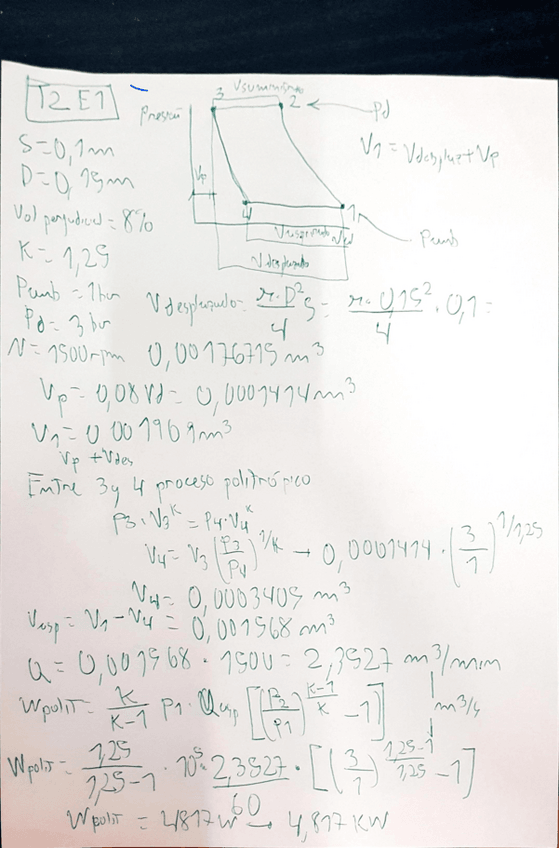 T2 E1
S=0,1m
D=0,15m
Vol perjudicial = 8%
K=1,25
Pamb=1bar
Pd=3bar
N=1500rpm
Presión
3
2
Pd
Vp
4
1
Vaspirado
Pamb
Vdesplazado
V1=Vdesplaz+Vp
Vdesplazado= π·D²/4 S = π·0,15²/4 · 0,1 =
0,00176715 m³
Vp=0,08Vd=0,0001414m³
V1=0,001909m³
Vp+Vdes
Entre 3 y 4 proceso politrópico
P3·V3^K=P4·V4^K
V4=V3(P3/P4)^1/K → 0,0001414·(3/1)^1/1,25
V4=0,0003405m³
Vasp=V1-V4=0,001568m³
Q=0,001568·1500=2,3527 m³/min
m³/s
Wpolit= K/K-1 P1·Qasp [(P2/P1)^K-1/K -1]
Wpolit= 1,25/1,25-1 · 10⁵·2,3527/60 · [(3/1)^1,25-1/1,25 -1]
Wpolit=4817W → 4,817KW